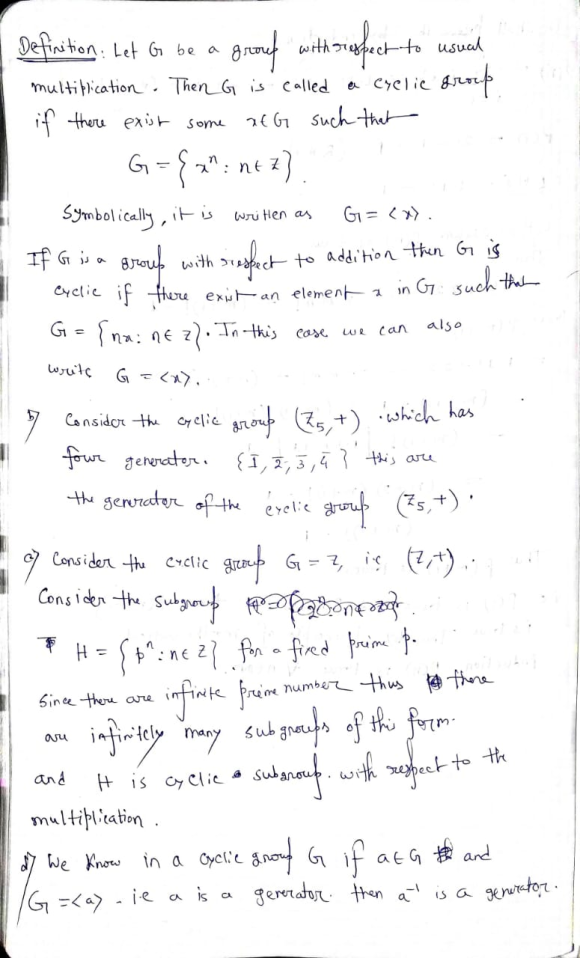 Definition: Let G be a group with respect to usual
multiplication. Then G is called a cyclic group
if there exist some x∈G such that
G = {xⁿ : n∈Z}.
Symbolically, it is written as G = <x>.
If G is a group with respect to addition then G is
cyclic if there exist an element x in G such that
G = {nx : n∈Z}. In this case we can also
write G = <x>.
b) Consider the cyclic group (Z₅,+) which has
four generator. {1̄, 2̄, 3̄, 4̄} this are
the generator of the cyclic group (Z₅,+).
c) Consider the cyclic group G = Z, i.e (Z,+).
Consider the subgroup
H = {pⁿ : n∈Z} for a fixed prime p.
Since there are infinite prime number thus there
are infinitely many subgroups of this form.
and H is cyclic subgroup. with respect to the
multiplication.
d) We Know in a cyclic group G if a∈G and
G = <a> - i.e a is a generator. then a⁻¹ is a generator.